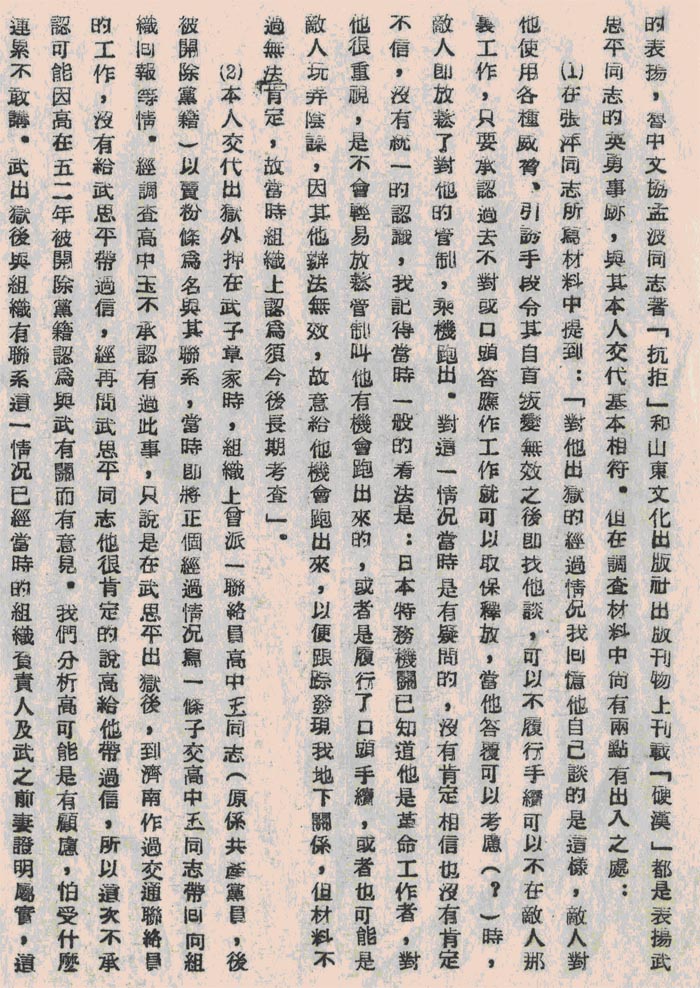 的表揚，魯中文協孟波同志著「抗拒」和山東文化出版社出版刊物上刊載「硬漢」都是表揚武
思平同志的英勇事跡，與其本人交代基本相符。但在調查材料中尚有兩點有出入之處：
(1)在張萍同志所寫材料中提到：「對他出獄的經過情况我回憶他自己談的是這樣，敵人對
他使用各種威脅、引誘手段令其自首叛變無效之後即找他談，可以不履行手續可以不在敵人那
裏工作，只要承認過去不對或口頭答應作工作就可以取保釋放，當他答覆可以考慮（？）時，
敵人即放鬆了對他的管制，乘機跑出。對這一情况當時是有疑問的，沒有肯定相信也沒有肯定
不信，沒有統一的認識，我記得當時一般的看法是：日本特務機關已知道他是革命工作者，對
他很重視，是不會輕易放鬆管制叫他有機會跑出來的，或者是履行了口頭手續，或者也可能是
敵人玩弄陰謀，因其他辦法無效，故意給他機會跑出來，以便跟踪發現我地下關係，但材料不
過無法肯定，故當時組織上認爲須今後長期考查」。
(2)本人交代出獄外押在武子章家時，組織上曾派一聯絡員高中玉同志（原係共產黨員，後
被開除黨籍）以賣粉條爲名與其聯系，當時即將正個經過情况寫一條子交高中玉同志帶回向組
織回報等情。經調查高中玉不承認有過此事，只說是在武思平出獄後，到濟南作過交通聯絡員
的工作，沒有給武思平帶過信，經再問武思平同志他很肯定的說高給他帶過信，所以這次不承
認可能因高在五二年被開除黨籍認爲與武有關而有意見。我們分析高可能是有顧慮，怕受什麽
連累不敢講。武出獄後與組織有聯系這一情况已經當時的組織負責人及武之前妻證明屬實，這